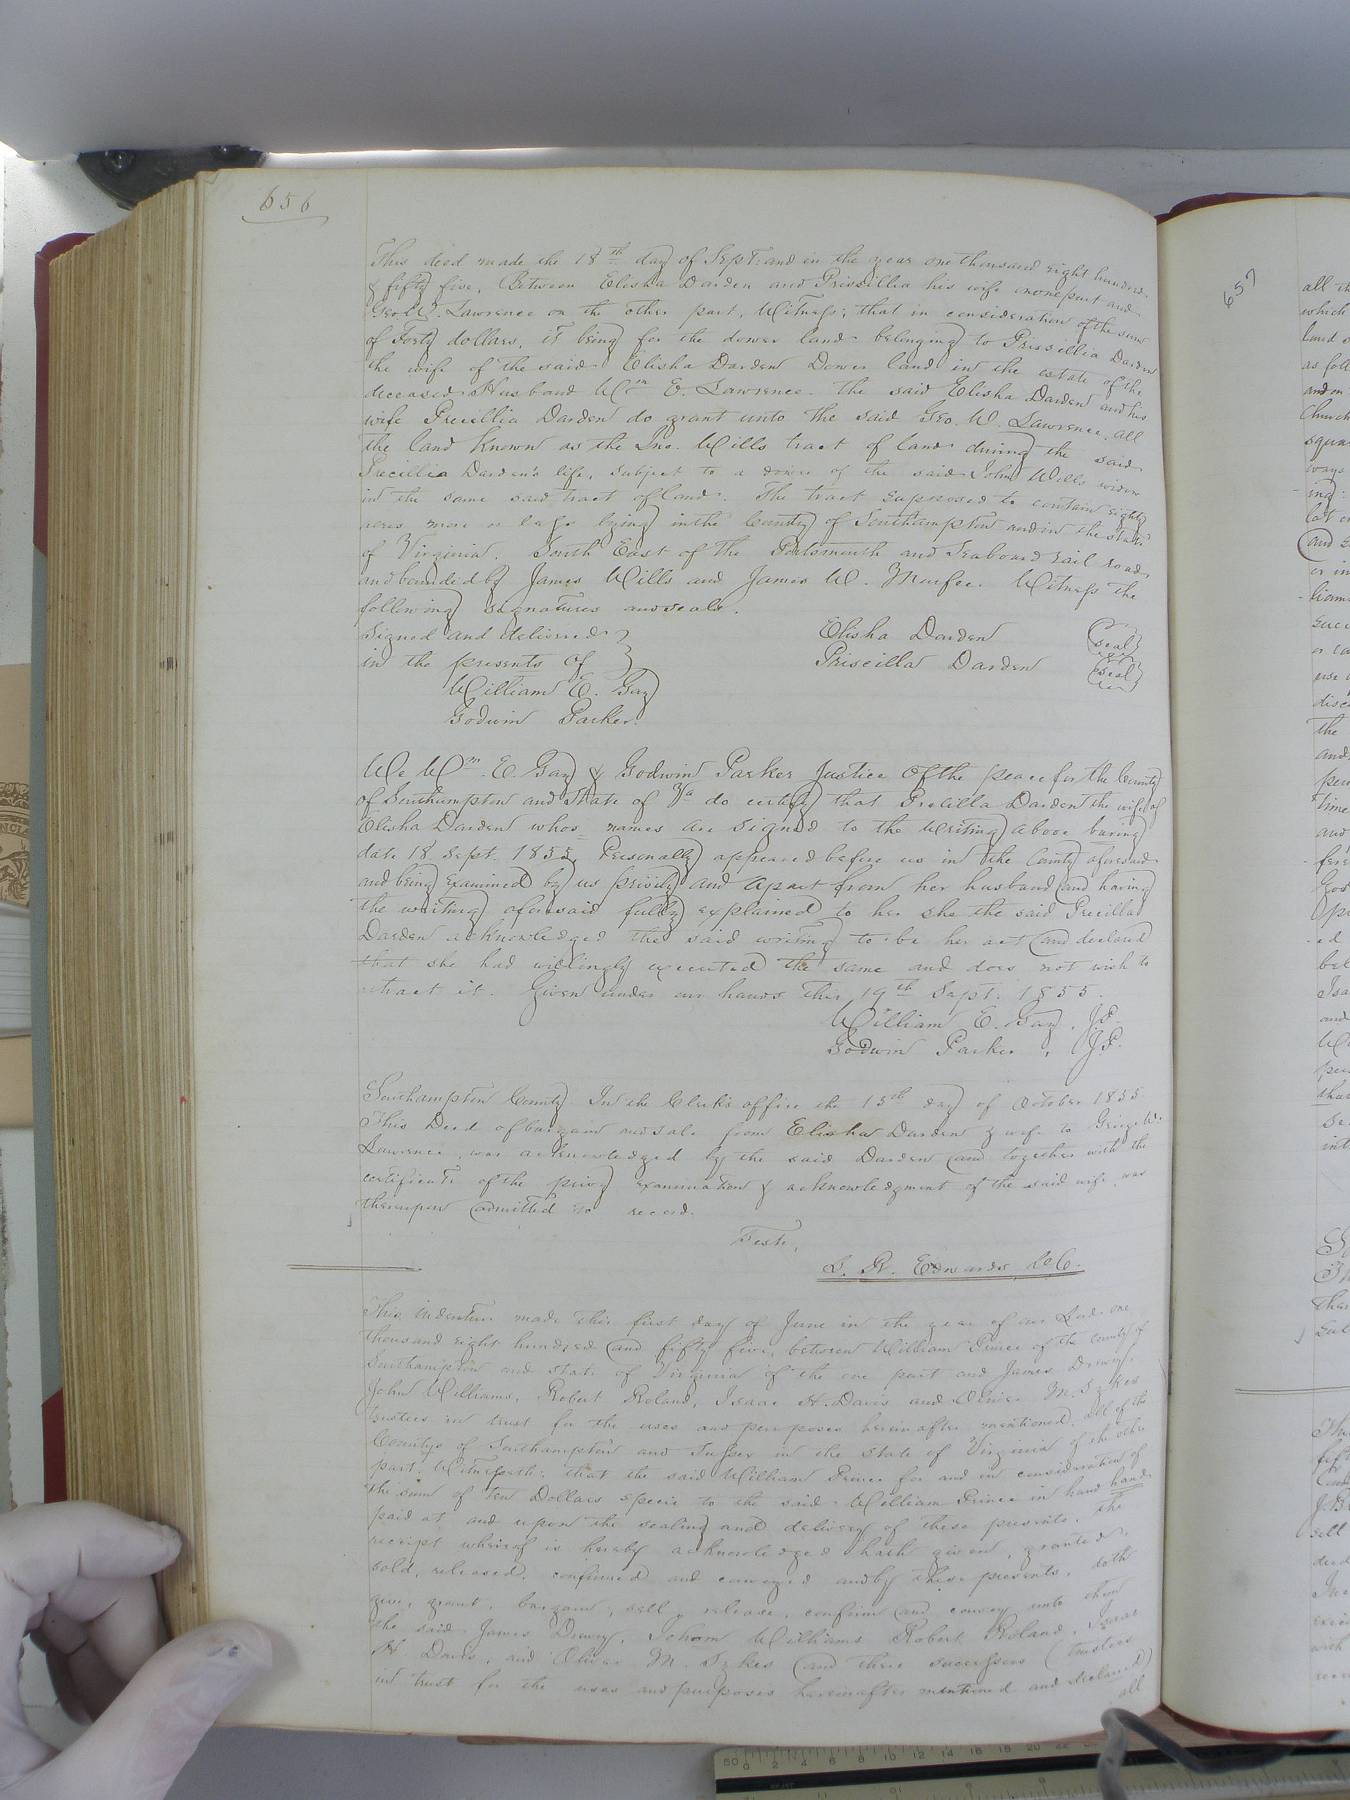 656
This deed made the 18th day of Sept: and in the year one thousand eight hundred
& fifty five, Between Elisha Darden and Priscillia his wife in one part and
Geo. W. Lawrence on the other part, Witness; that in consideration of the sum
of Forty dollars, it being for the dower land belonging to Prissillia Darden
the wife of the said Elisha Darden Dower land in the estate of the
deceased Husband Wm E. Lawrence. The said Elisha Darden and his
wife Precillia Darden do grant unto the said Geo. W. Lawrence, all
the land known as the Jno. Wills tract of land during the said
Precillia Darden's life, subject to a dower of the said John Wills widow
in the same said tract of land. The tract supposed to contain eighty
acres more or less lying in the County of Southampton and in the state
of Virginia. South East of the Portsmouth and Seaboard rail road,
and bounded by James Wills and James W. Murfee. Witness the
following signatures and seals.
Signed and delivered
in the presents of
William E. Gay
Godwin Parker.
Elisha Darden (seal)
Priscilla Darden (seal)
We Wm. E. Gay & Godwin Parker Justice Of the peace for the County
of Southampton and State of Va do certify that Precilla Darden the wife of
Elisha Darden whos names are signed to the writing above baring
date 18 Sept. 1855, Personally appeared before us in the County aforesaid
and being examined by us privily and apart from her husband and having
the writing aforesaid fully explained to her she the said Precilla
Darden acknowledged the said writing to be her act and declared
that she had willingly executed the same and does not wish to
retract it. Given under our hands this 19th Sept: 1855.
William E. Gay, J.P.
Godwin Parker, J.P.
Southampton County In the Clerk's office the 15th day of October 1855
This Deed of bargain and sale from Elisha Darden & wife to George W.
Lawrence, was acknowledged by the said Darden and together with the
certificate of the privy examination & acknowledgment of the said wife, was
thereupon admitted to record.
Teste,
L. R. Edwards, C.C.
This indenture made this first day of June in the year of our Lord one
thousand eight hundred and fifty five, between William Prince of the County of
Southampton and State of Virginia of the one part and James Drewry,
John Williams, Robert Roland, Isaac H. Davis and Oliver M. Sykes
trustees in trust for the uses and purposes hereinafter mentioned, all of the
Countys of Southampton and Sussex in the State of Virginia of the other
part. Witnesseth: that the said William Prince for and in consideration of
the sum of ten Dollars specie to the said William Prince in hand
paid at and upon the sealing and delivery of these presents, the
receipt whereof is hereby acknowledged hath given, granted,
sold, released, confirmed and conveyed and by these presents, doth
give, grant, bargain, sell, release, confirm and convey unto them
the said James Drewry, Williams Robert Roland, Isaac
H. Davis, and Oliver M. Sykes and there successors (trustees
in trust for the uses and purposes hereinafter mentioned and declared)
all
657
all
which
land
as foll
and on
Church
squa
ways
ing
and